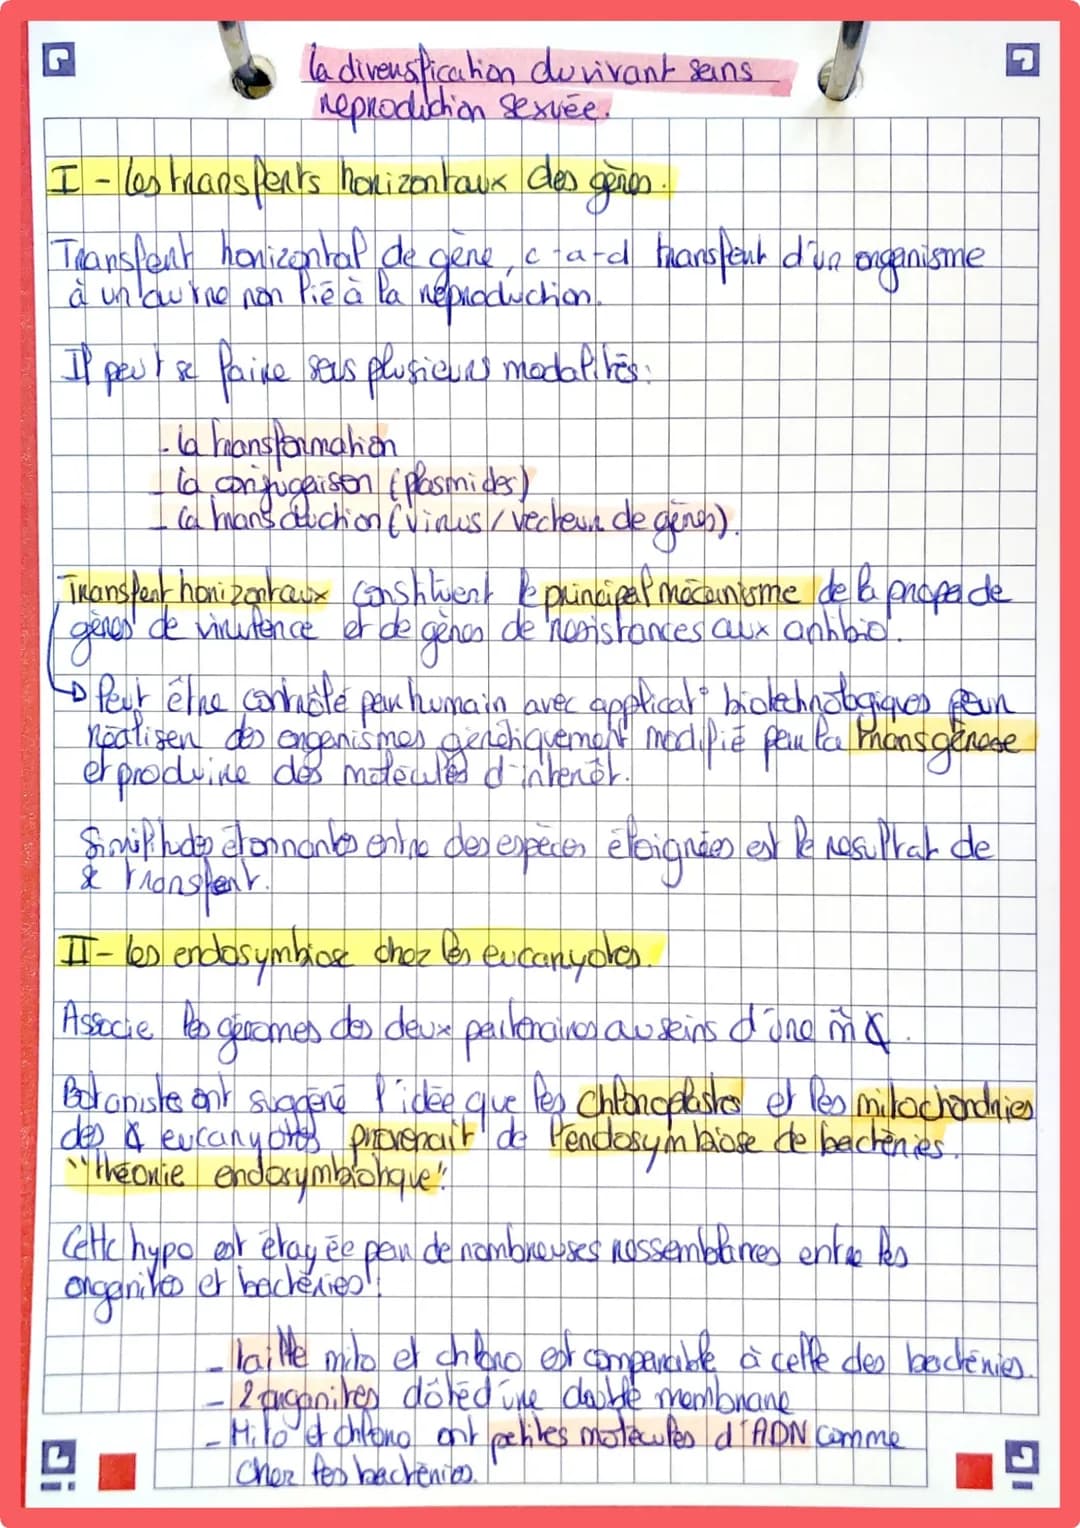 la diversification du vivant sans
reproduction sexuée.
I - les transferts horizontaux des gènes.
Transfert horizontal de gène, c-a-d transfert d'un organisme
à un autre non lié à la reproduction.
Il peut se faire sous plusieurs modalités:
- la transformation
- la conjugaison (plasmides)
- la transduction (virus / vecteur de gènes).
Transfert horizontaux constituent le principal mécanisme de la propa de
gènes de virulence et de gènes de résistances aux antibio.
↳ Peut être contrôlé par humain avec applicat° biotechnologiques pour
réaliser des organismes génétiquement modifié par la transgénèse
et produire des molécules d'intérêt.
Similitudes étonnantes entre des espèces éloignées est le résultat de
ce transfert.
II - les endosymbiose chez les eucaryotes.
Associe les génomes des deux partenaires au seins d'une m̂
Botaniste ont suggéré l'idée que les chloroplastes et les mitochondries
des eucaryotes provenait de l'endosymbiose de bactéries.
"théorie endosymbiotique".
Cette hypo est étayée par de nombreuses ressemblances entre les
organites et bactéries:
- taille mito et chloro est comparable à celle des bactéries.
- 2 organites dôté d'une double membrane
- Mito et chloro ont petites molécules d'ADN comme
chez les bactéries.